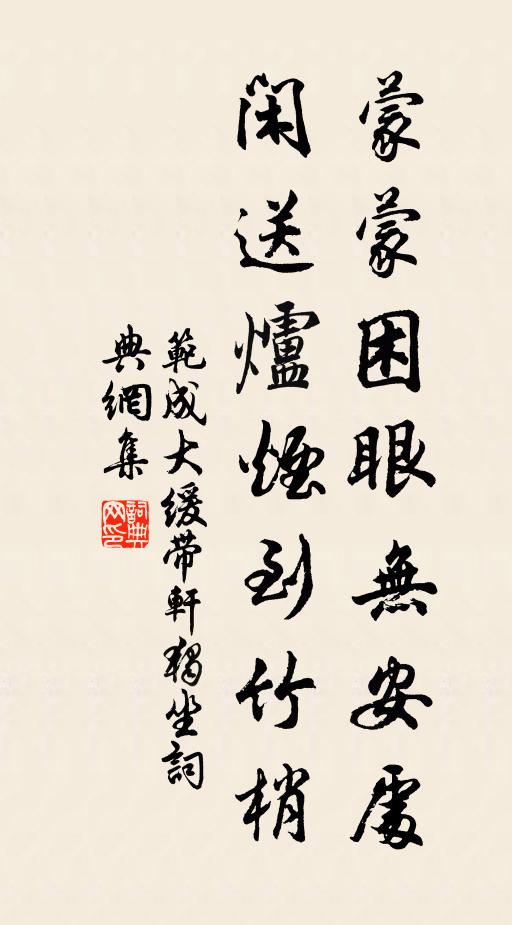 蒙蒙困眼無安處
閑送爐煙到竹梢
範成大緩带軒獨坐詞
典網集
詞典
网印